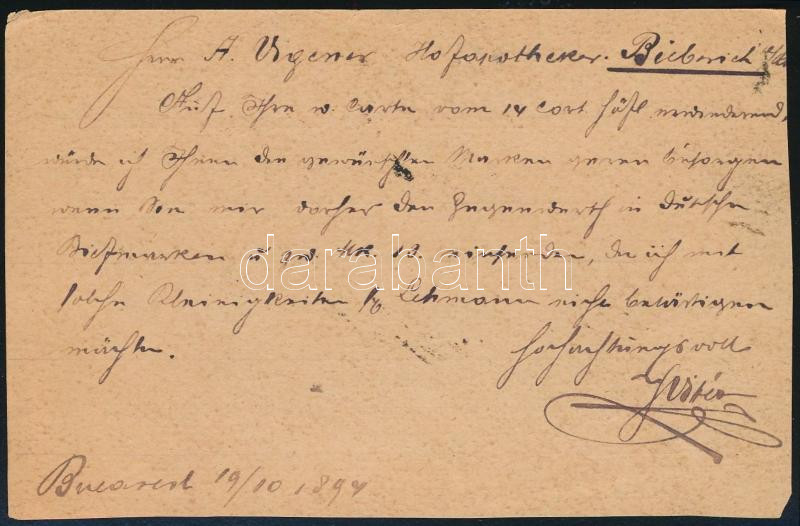 Herr A. Vigener Hofapotheker. Bieberich
Auf Ihre w. Carte vom 14 cort höfl. erwiedernd,
würde ich Ihnen die gewünschten Marken gerne besorgen
wenn Sie mir vorher den Gegenwerth in Deutschen
Briefmarken u. zw. Mk. einsenden, da ich mit
solche Kleinigkeiten Lehmann nicht belästigen
möchte. Hochachtungsvoll
darabanth
Bucarest 19/10 1894